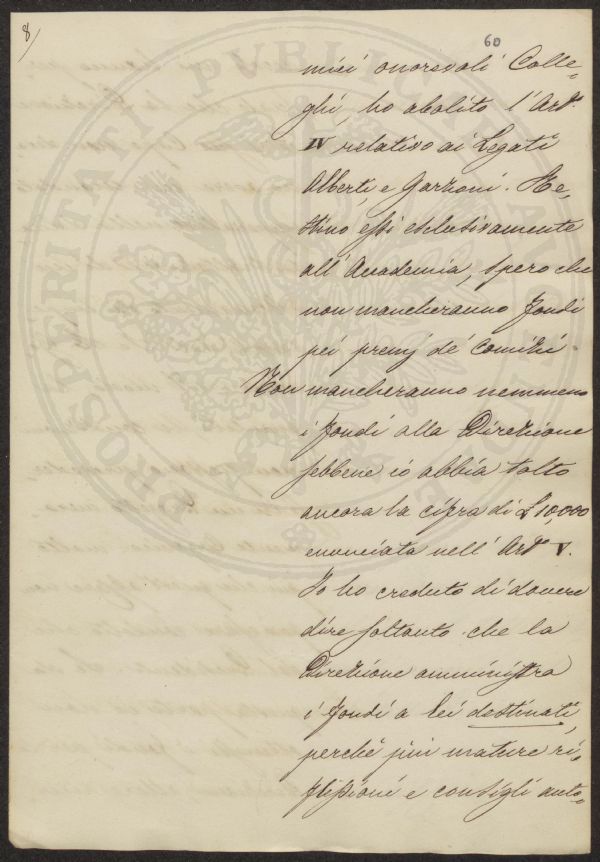 8/
60
miei onorevoli Colle-
ghi, ho abolito l'Art.
IV relativo ai Legati
Alberti, e Garzoni. Re-
stino essi esclusivamente
all'Accademia, spero che
non mancheranno fondi
pei premj de' Comizi.
Non mancheranno nemmeno
i fondi alla Direzione
sebbene io abbia tolto
ancora la cifra di £ 10,000
enunciata nell'Art. V.
Io ho creduto di dovere
dire soltanto che la
Direzione amministra
i fondi a lei destinati,
perchè più mature ri-
flessioni e consigli auto-
PROSPERITATI PVBLICAE AVGENDAE